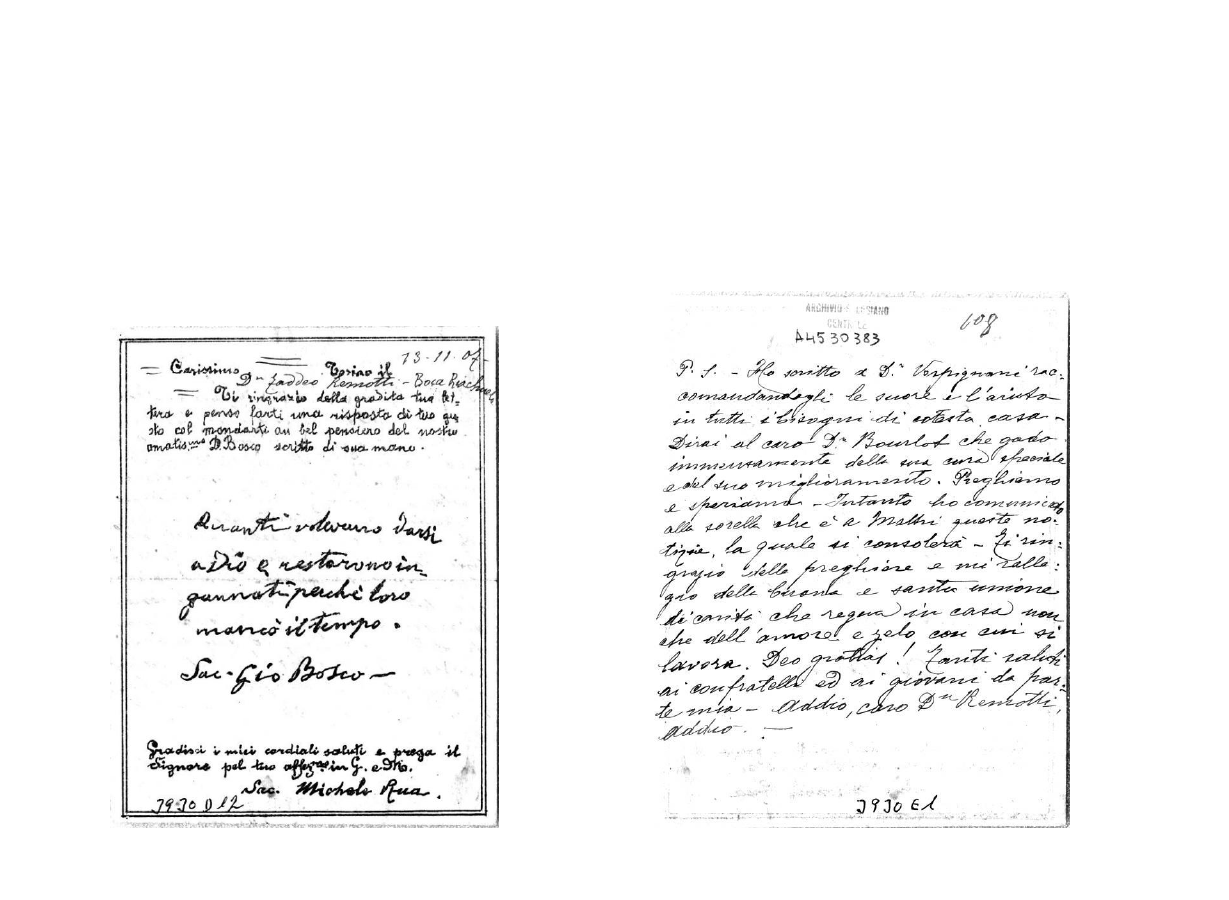 Carissimo Torino il 13-11-07-
Dn Taddeo Remotti - Boca
Ti ringrazio della gradita tua let-
tera e penso farti una risposta di tuo gu-
sto col mandarti un bel pensiero del nostro
amatis.mo D. Bosco scritto di sua mano.
Quanti volevano darsi
a Dio e restarono in-
gannati perchè loro
mancò il tempo.
Sac. Gio Bosco —
Gradisci i miei cordiali saluti e prega il
Signore pel tuo affez.mo in G. e M.
Sac. Michele Rua.
3930 D 12
ARCHIVIO SALESIANO
CENTRALE
A4530383
108
P. S. - Ho scritto a D.n Vespignani rac:
comandandogli le suore e l'aiuto
in tutti i bisogni di cotesta casa -
Dirai al caro D.n Bourlot che godo
immensamente della sua cura speciale
e del suo miglioramento. Preghiamo
e speriamo - Intanto ho comunicato
alla sorella che è a Mathi queste no:
tizie, la quale si consolerà - Ti rin:
grazio delle preghiere e mi ralle:
gro della buona e santa unione
di carità che regna in casa non
che dell'amore e zelo con cui si
lavora. Deo gratias! Tanti saluti
ai confratelli ed ai giovani da par-
te mia - Addio, caro Dn Remotti,
addio. —
3930 E1